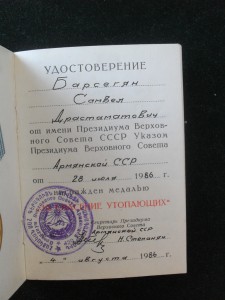 УДОСТОВЕРЕНИЕ
Барсегян
Самвел
Драстаматович
от имени Президиума Верхов-
ного Совета СССР Указом
Президиума Верховного Совета
Армянской ССР
от 28 июля 1986 г.
медалью
УТОПАЮЩИХ"
Секретарь Президиума
Верховного Совета
Армянской ССР
Н. Степанян
"4" августа 1986 г.